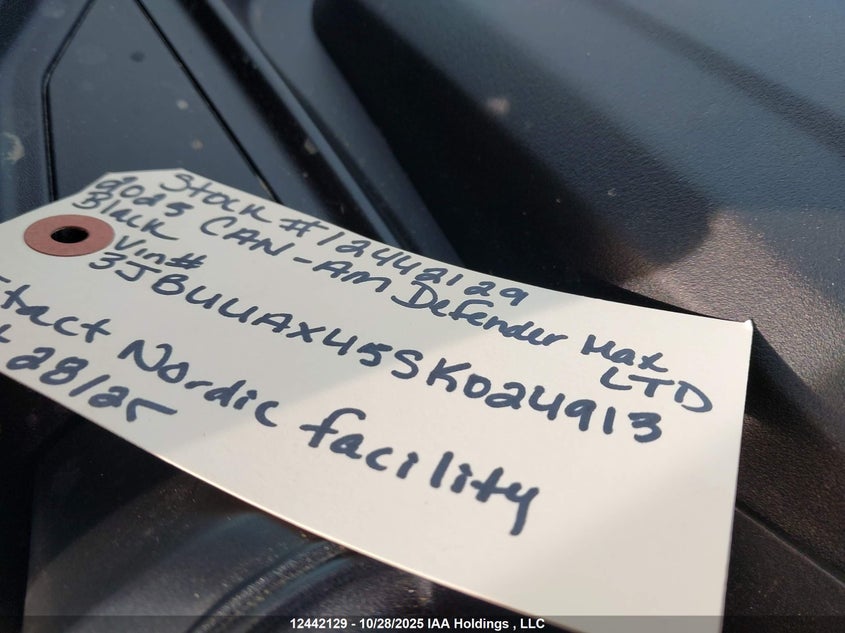 Stock #12442129
2025 CAN-Am Defender Max
Black LTD
Vin#
3JBUUAX45SK024913
tact Nordic facility
28/25
12442129 - 10/28/2025 IAA Holdings , LLC